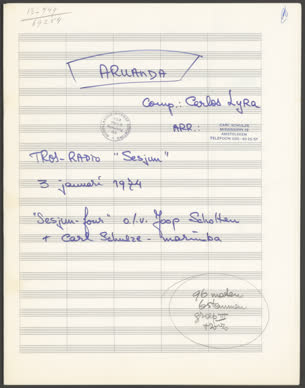 ARUANDA
Comp.: Carlos Lyra
ARR.: CARL SCHULZE
AMSTELVEEN
TELEFOON
TROS-RADIO "Sesjun"
3 januari 1974
"Sesjun-four" o.l.v. Joop Scholten
+ Carl Schulze - marimba
96 maten
6 stemmen